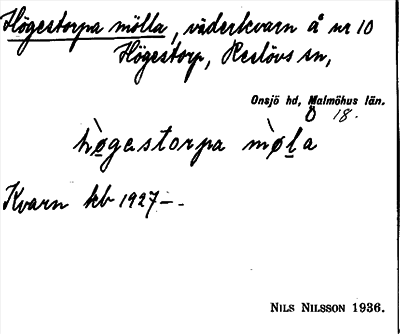 Högestorpa mölla, väderkvarn å nr 10
Högestorp, Reslövs sn,
Onsjö hd, Malmöhus län.
Ö 18.
hø̀gastorpa mø̀la
Kvarn kb 1927–.
NILS NILSSON 1936.